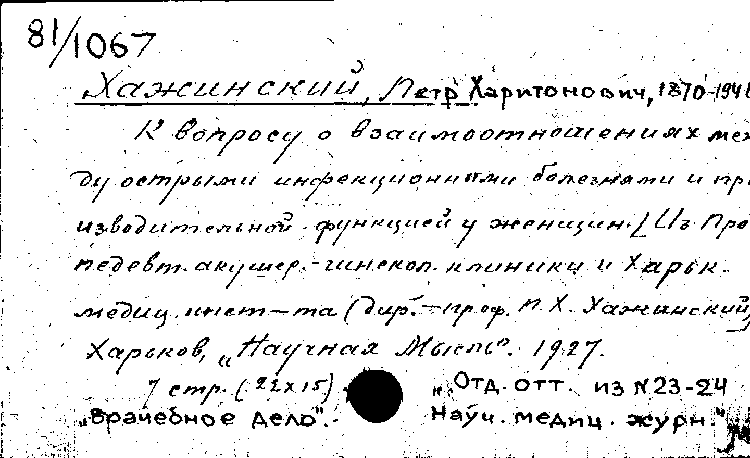 81/1067
Хажинский, Петр Харитонович, 1870-194
К вопросу о взаимоотношениях меж
ду острыми инфекционными болезнями и пр
изводительной функцией у женщин. [Из Про
педевт. акушер.-гинекол. клиники и Харьк.
медиц. инст-та (дир.-проф. П. Х. Хажинский)
Харьков, „Научная Мысль". 1927.
7 стр. (22х15) „Отд. отт. из №23-24
„Врачебное дело". Науч. медиц. журн."